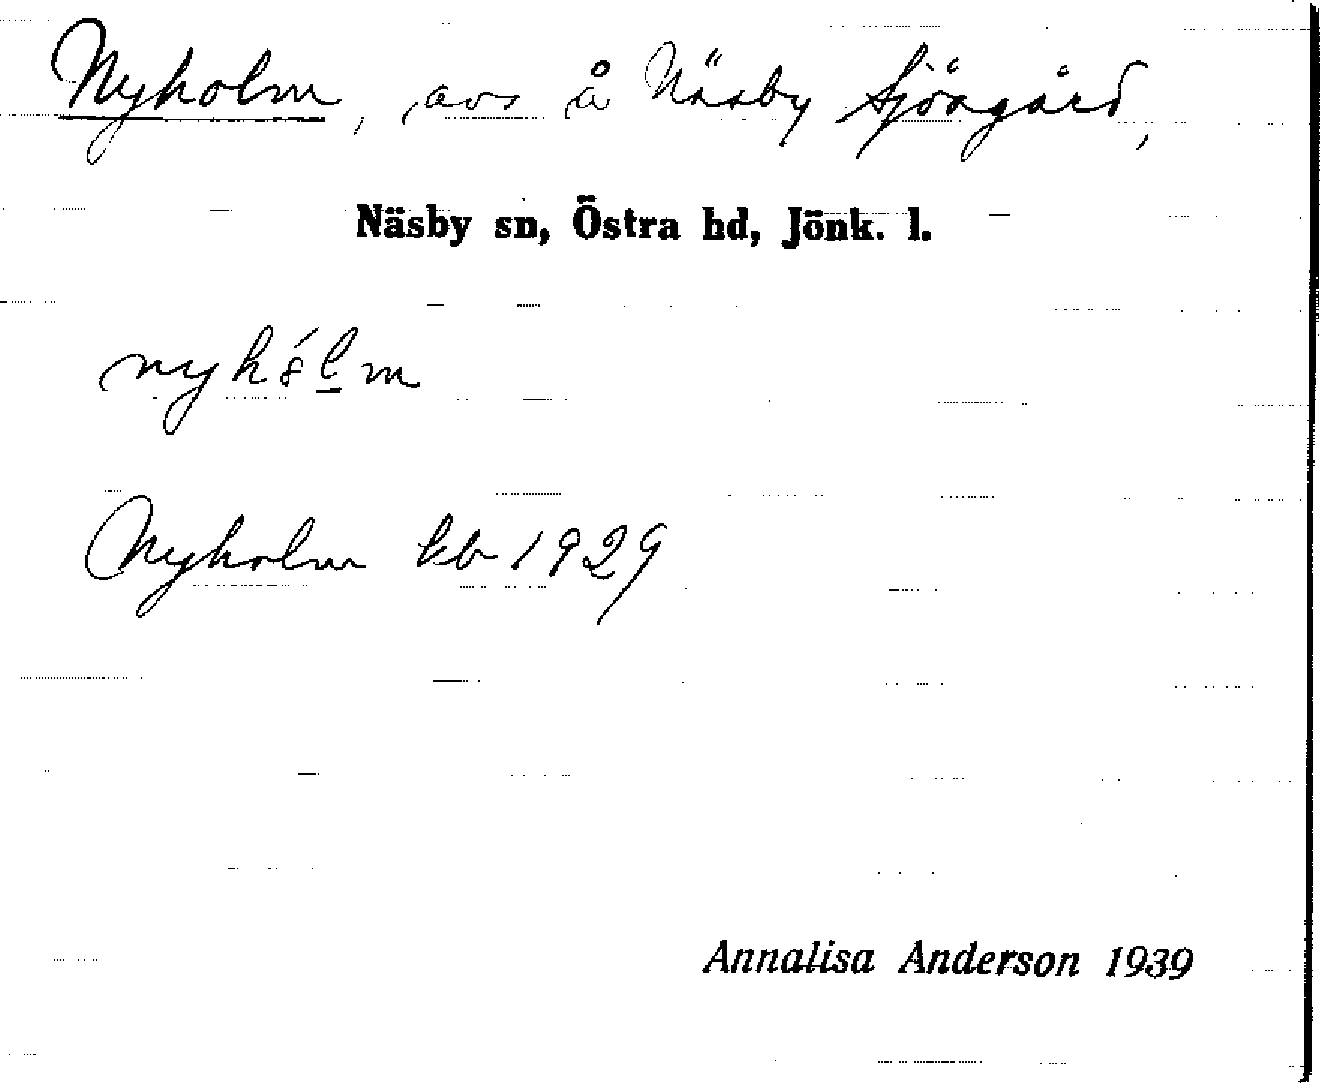 Nyholm, avs å Näsby Sjögård,
Näsby sn, Östra hd, Jönk. l.
Nyholm kb 1929
Annalisa Anderson 1939